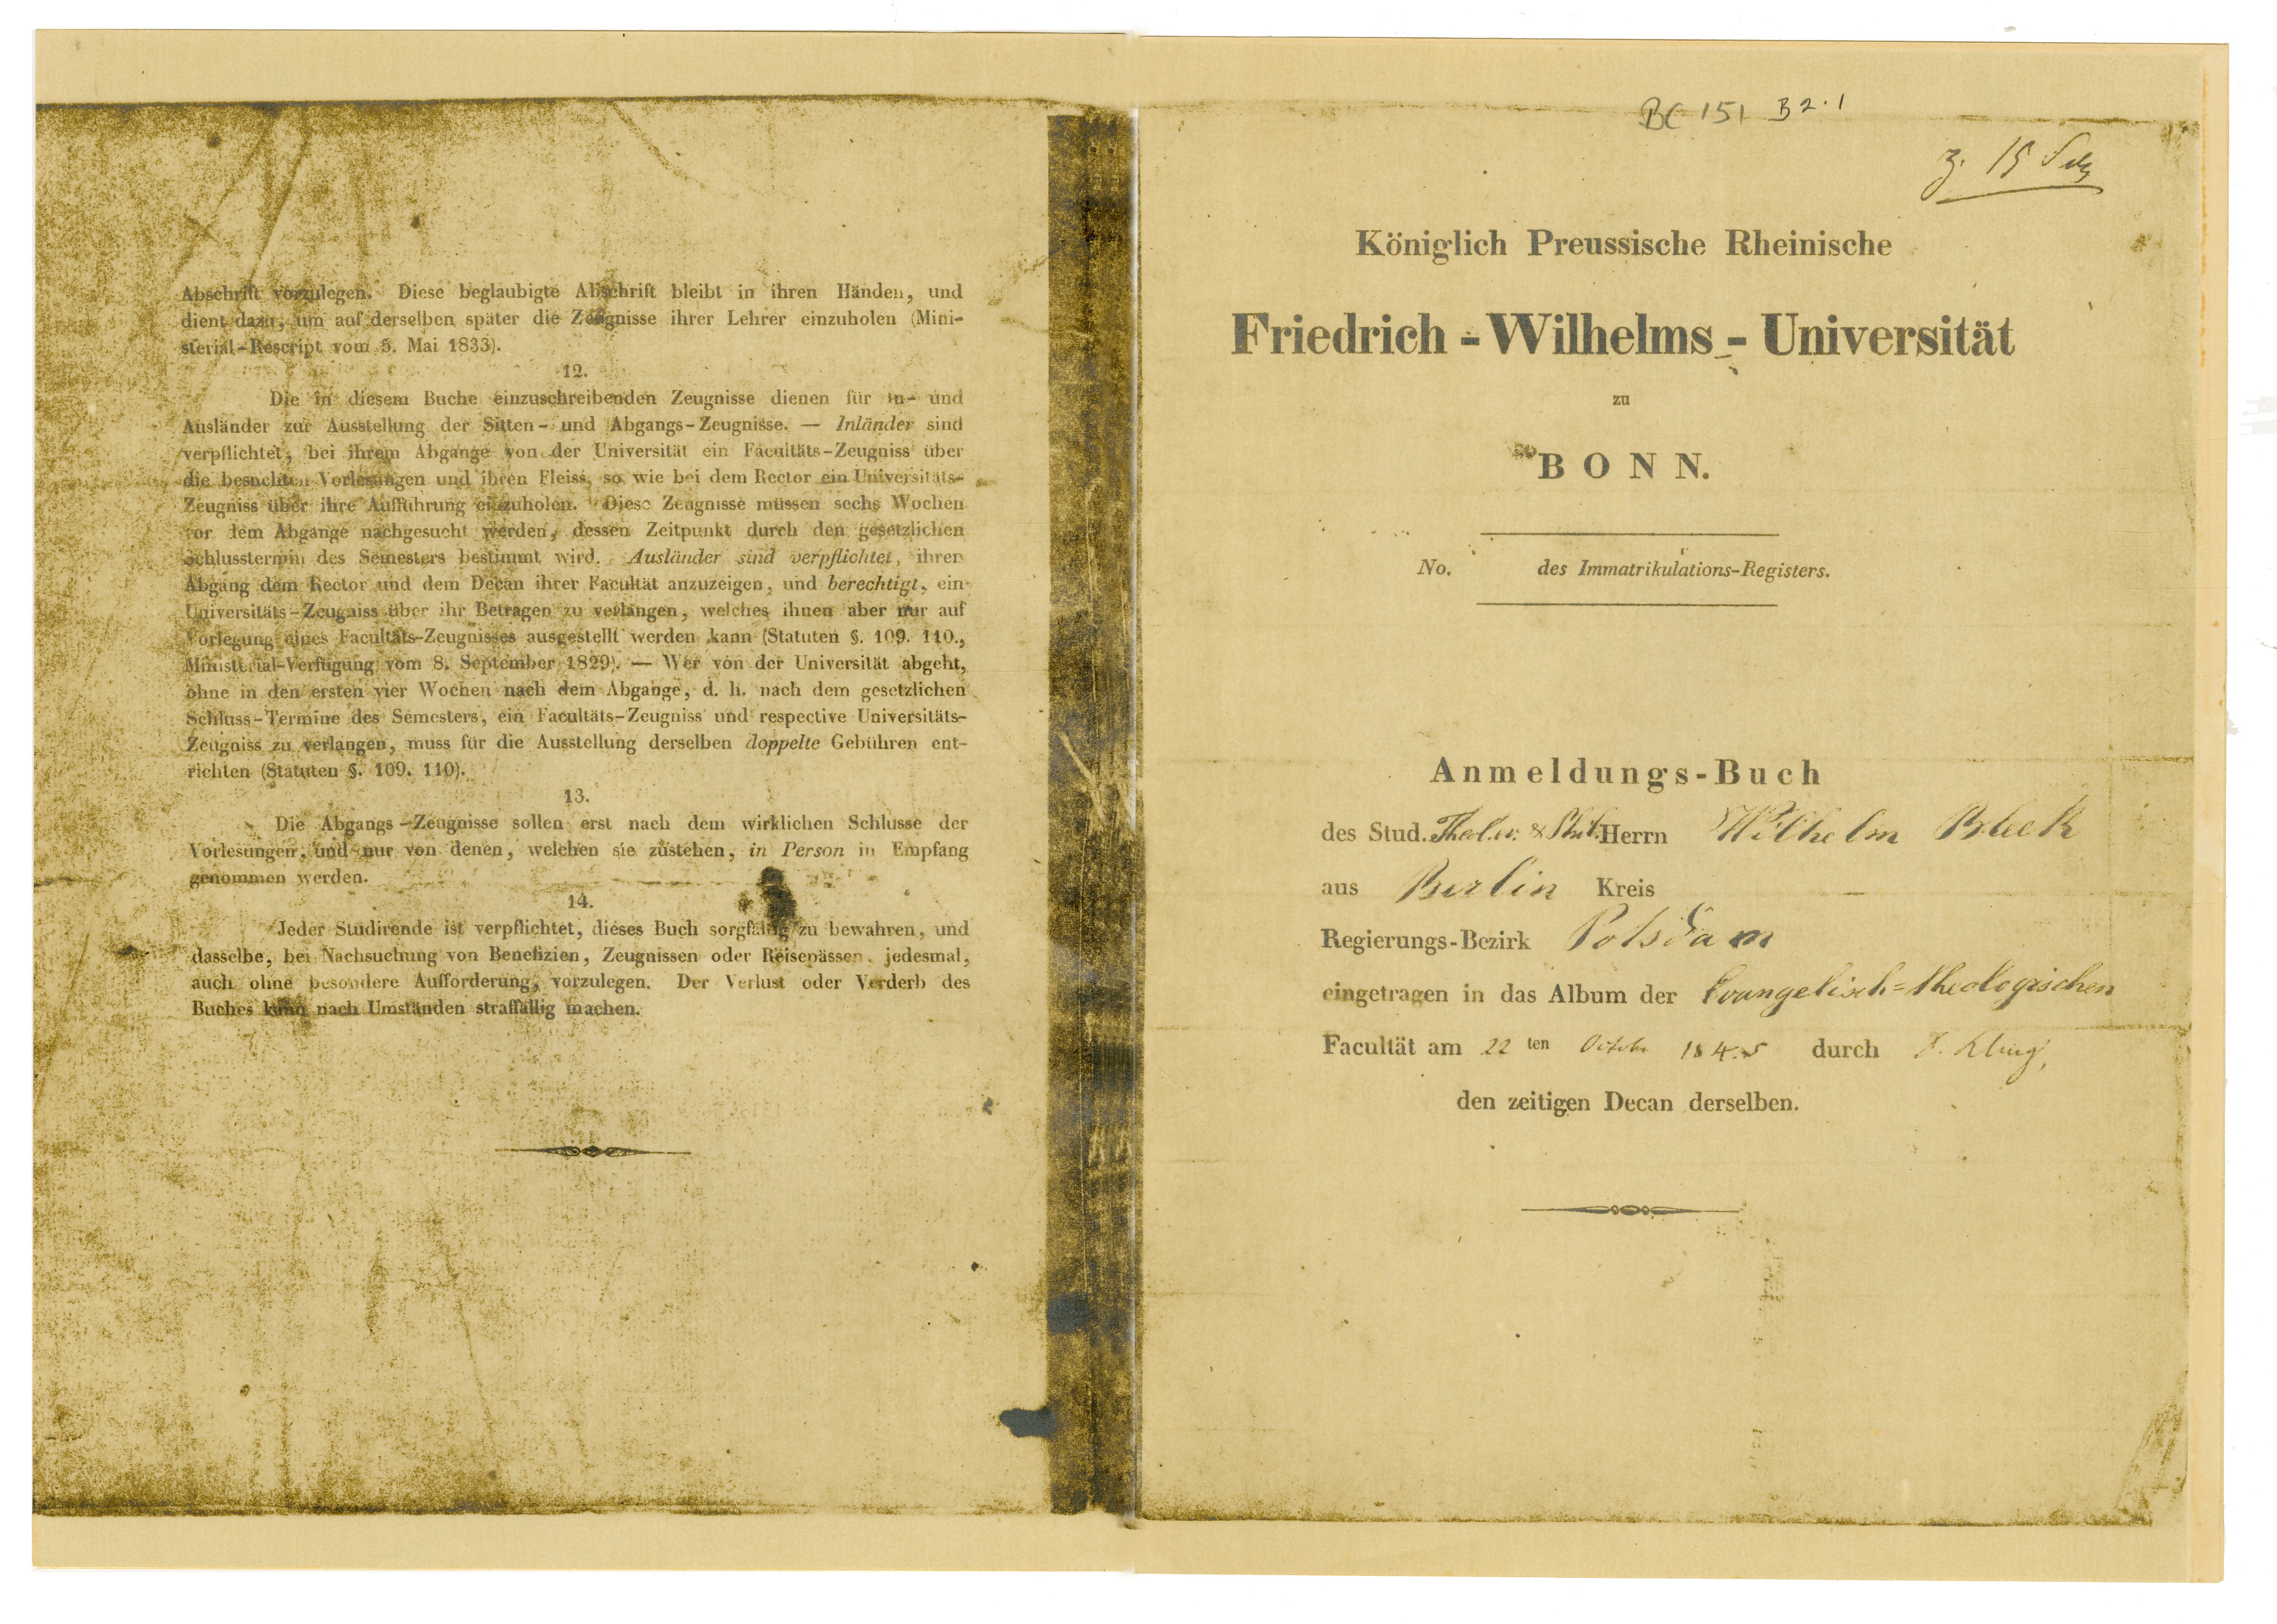 Abschrift vorzulegen. Diese beglaubigte Abschrift bleibt in ihren Händen, und
dient dazu, um auf derselben später die Zeugnisse ihrer Lehrer einzuholen (Mini-
sterial-Rescript vom 5. Mai 1833).
12.
Die in diesem Buche einzuschreibenden Zeugnisse dienen für In- und
Ausländer zur Ausstellung der Sitten- und Abgangs-Zeugnisse. — Inländer sind
verpflichtet, bei ihrem Abgange von der Universität ein Facultäts-Zeugniss über
die besuchten Vorlesungen und ihren Fleiss, so wie bei dem Rector ein Universitäts-
Zeugniss über ihre Aufführung einzuholen. Diese Zeugnisse müssen sechs Wochen
vor dem Abgange nachgesucht werden, dessen Zeitpunkt durch den gesetzlichen
Schlusstermin des Semesters bestimmt wird. Ausländer sind verpflichtet, ihren
Abgang dem Rector und dem Decan ihrer Facultät anzuzeigen, und berechtigt, ein
Universitäts-Zeugniss über ihr Betragen zu verlangen, welches ihnen aber nur auf
Vorlegung eines Facultäts-Zeugnisses ausgestellt werden kann (Statuten §. 109. 110.,
Ministerial-Verfügung vom 8. September 1829). — Wer von der Universität abgeht,
ohne in den ersten vier Wochen nach dem Abgange, d. h. nach dem gesetzlichen
Schluss-Termine des Semesters, ein Facultäts-Zeugniss und respective Universitäts-
Zeugniss zu verlangen, muss für die Ausstellung derselben doppelte Gebühren ent-
richten (Statuten §. 109. 110).
13.
Die Abgangs-Zeugnisse sollen erst nach dem wirklichen Schlusse der
Vorlesungen, und nur von denen, welchen sie zustehen, in Person in Empfang
genommen werden.
14.
Jeder Studirende ist verpflichtet, dieses Buch sorgfältig zu bewahren, und
dasselbe, bei Nachsuchung von Benefizien, Zeugnissen oder Reisepässen, jedesmal,
auch ohne besondere Aufforderung, vorzulegen. Der Verlust oder Verderb des
Buches kann nach Umständen straffällig machen.
BC 151 B2.1
Königlich Preussische Rheinische
Friedrich-Wilhelms-Universität
zu
BONN.
No. des Immatrikulations-Registers.
Anmeldungs-Buch
des Stud. Theol. ev. & Phil. Herrn Wilhelm Bleek
aus Berlin Kreis —
Regierungs-Bezirk Potsdam
eingetragen in das Album der Evangelisch=theologischen
Facultät am 22 ten October 1845 durch Kling,
den zeitigen Decan derselben.